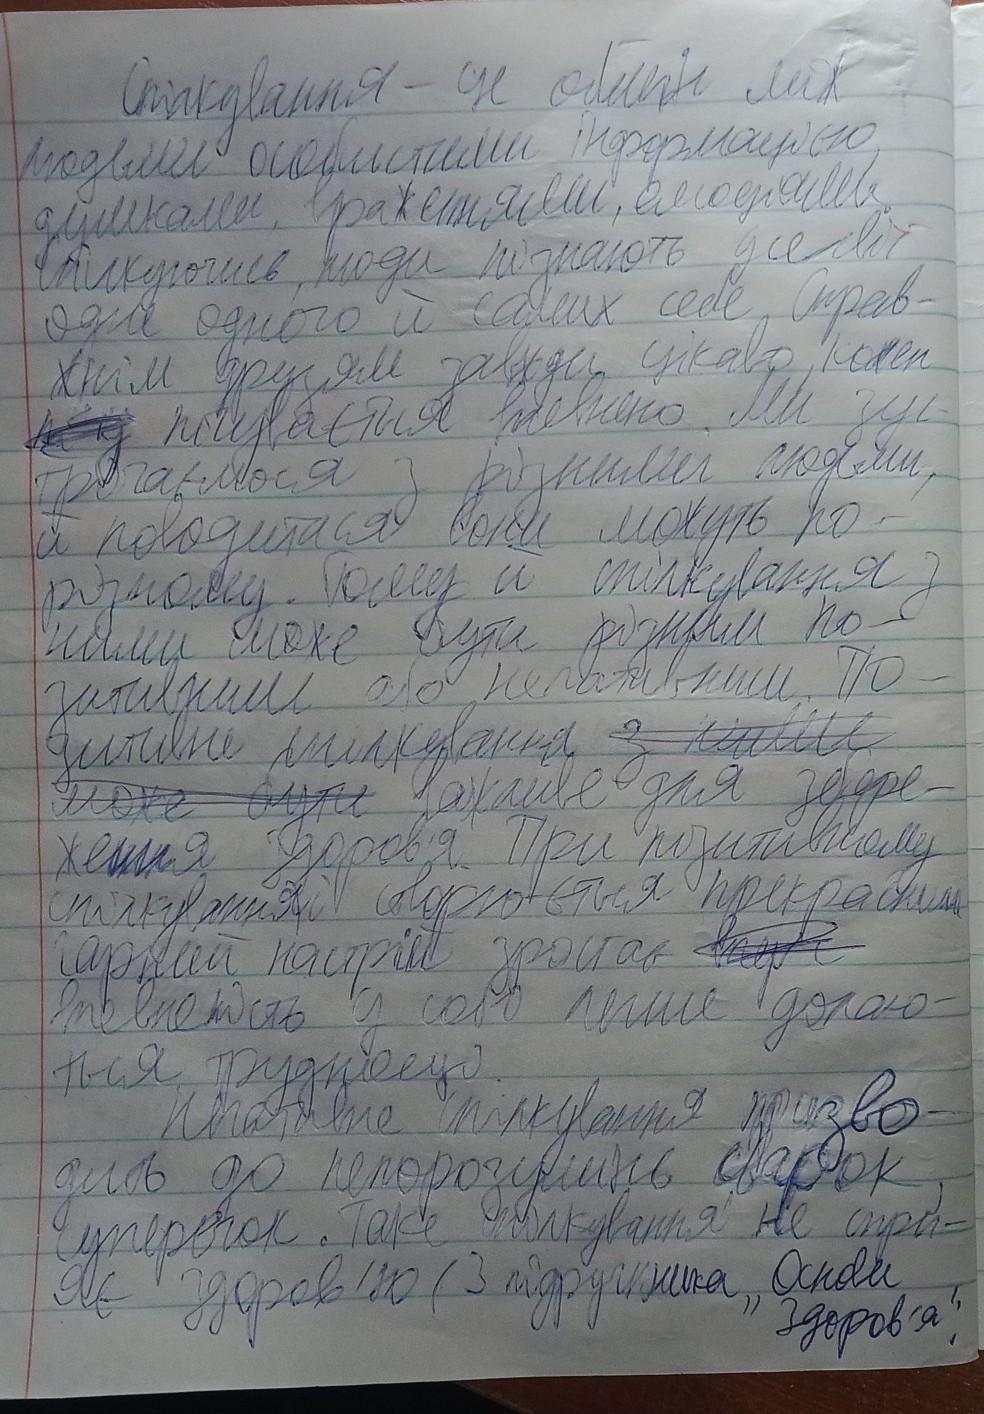 Спілкування – це обмін між
людьми особистими інформацією,
думками, враженнями, емоціями.
Спілкуючись, люди пізнають усе світ
одне одного й самих себе. Справ-
жнім друзям завжди цікаво, кожен
почувається впевнено. Ми зус-
трічаємося з різними людьми,
й поводитися вони можуть по-
різному. Тому й спілкування з
ними може бути різним по-
зитивним або негативним. По-
зитивне спілкування з ними
може бути важливе для збере-
ження здоров'я. При позитивному
спілкуванні створюється прекрасний
гарний настрій зростає
впевненість у собі легше долаю-
ться труднощі.
Негативне спілкування призво-
дить до непорозумінь сварок,
суперечок. Таке спілкування не спри-
яє здоров'ю (З підручника „Основи
Здоров'я".